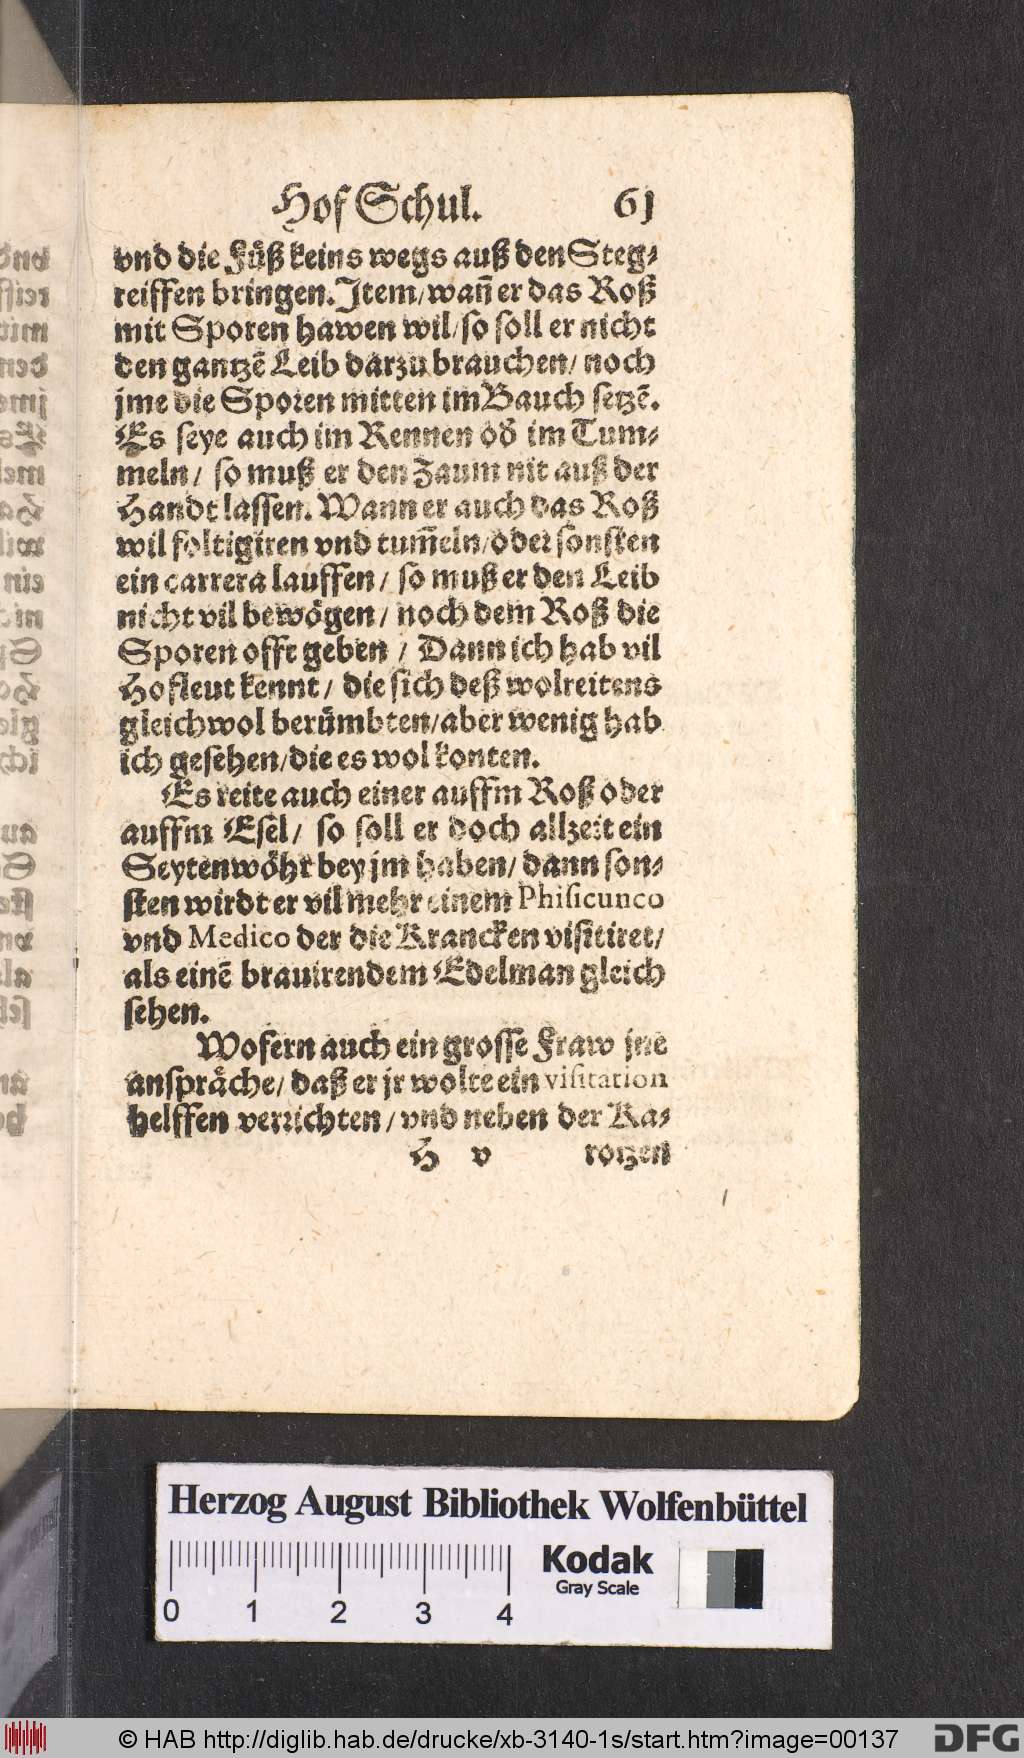 Hof Schul. 61
vnd die Fuͤß keins wegs auß den Steg⸗
reiffen bringen. Jtem/ wañ er das Roß
mit Sporen hawen wil/ so soll er nicht
den gantzẽ Leib darzu brauchen/ noch
jme die Sporen mitten im Bauch setzẽ.
Es seye auch im Rennen oď im Tum⸗
meln/ so muß er den Zaum nit auß der
Handt lassen. Wann er auch das Roß
wil foltigiren vnd tum̃eln/ oder sonsten
ein carrera lauffen/ so muß er den Leib
nicht vil bewoͤgen/ noch dem Roß die
Sporen offt geben/ Dann ich hab vil
Hofleut kennt/ die sich deß wolreitens
gleichwol beruͤmbten/ aber wenig hab
ich gesehen/ die es wol konten.
Es reite auch einer auffm Roß oder
auffm Esel/ so soll er doch allzeit ein
Seytenwoͤhr bey jm haben/ dann son⸗
sten wirdt er vil mehr einem Phisicunco
vnd Medico der die Krancken visitiret/
als einẽ brauirendem Edelman gleich
sehen.
Wofern auch ein grosse Fraw jne
anspraͤche/ daß er jr wolte ein visitation
helffen verrichten/ vnd neben der Ka⸗
H v rotzen
Herzog August Bibliothek Wolfenbüttel
Kodak
Gray Scale
0 1 2 3 4
© HAB http://diglib.hab.de/drucke/xb-3140-1s/start.htm?image=00137 DFG